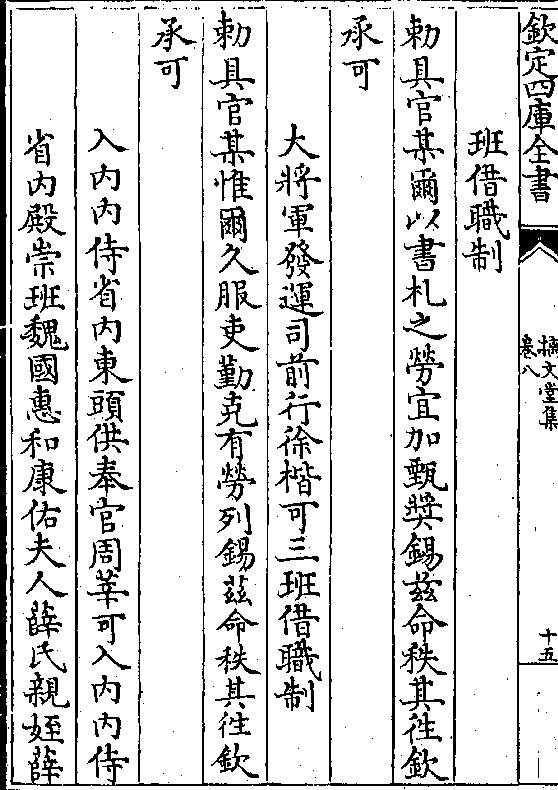 欽定四庫全書
摛文堂集
卷八
十五
班借職制
勅具官某爾以書札之勞宜加甄奬錫兹命秩其徃欽
承可
大將軍發運司前行徐楷可三班借職制
勅具官某惟爾久服吏勤克有勞列錫兹命秩其徃欽
承可
入内内侍省内東頭供奉官周莘可入内内侍
省内殿崇班魏國惠和康佑夫人薛氏親姪薛